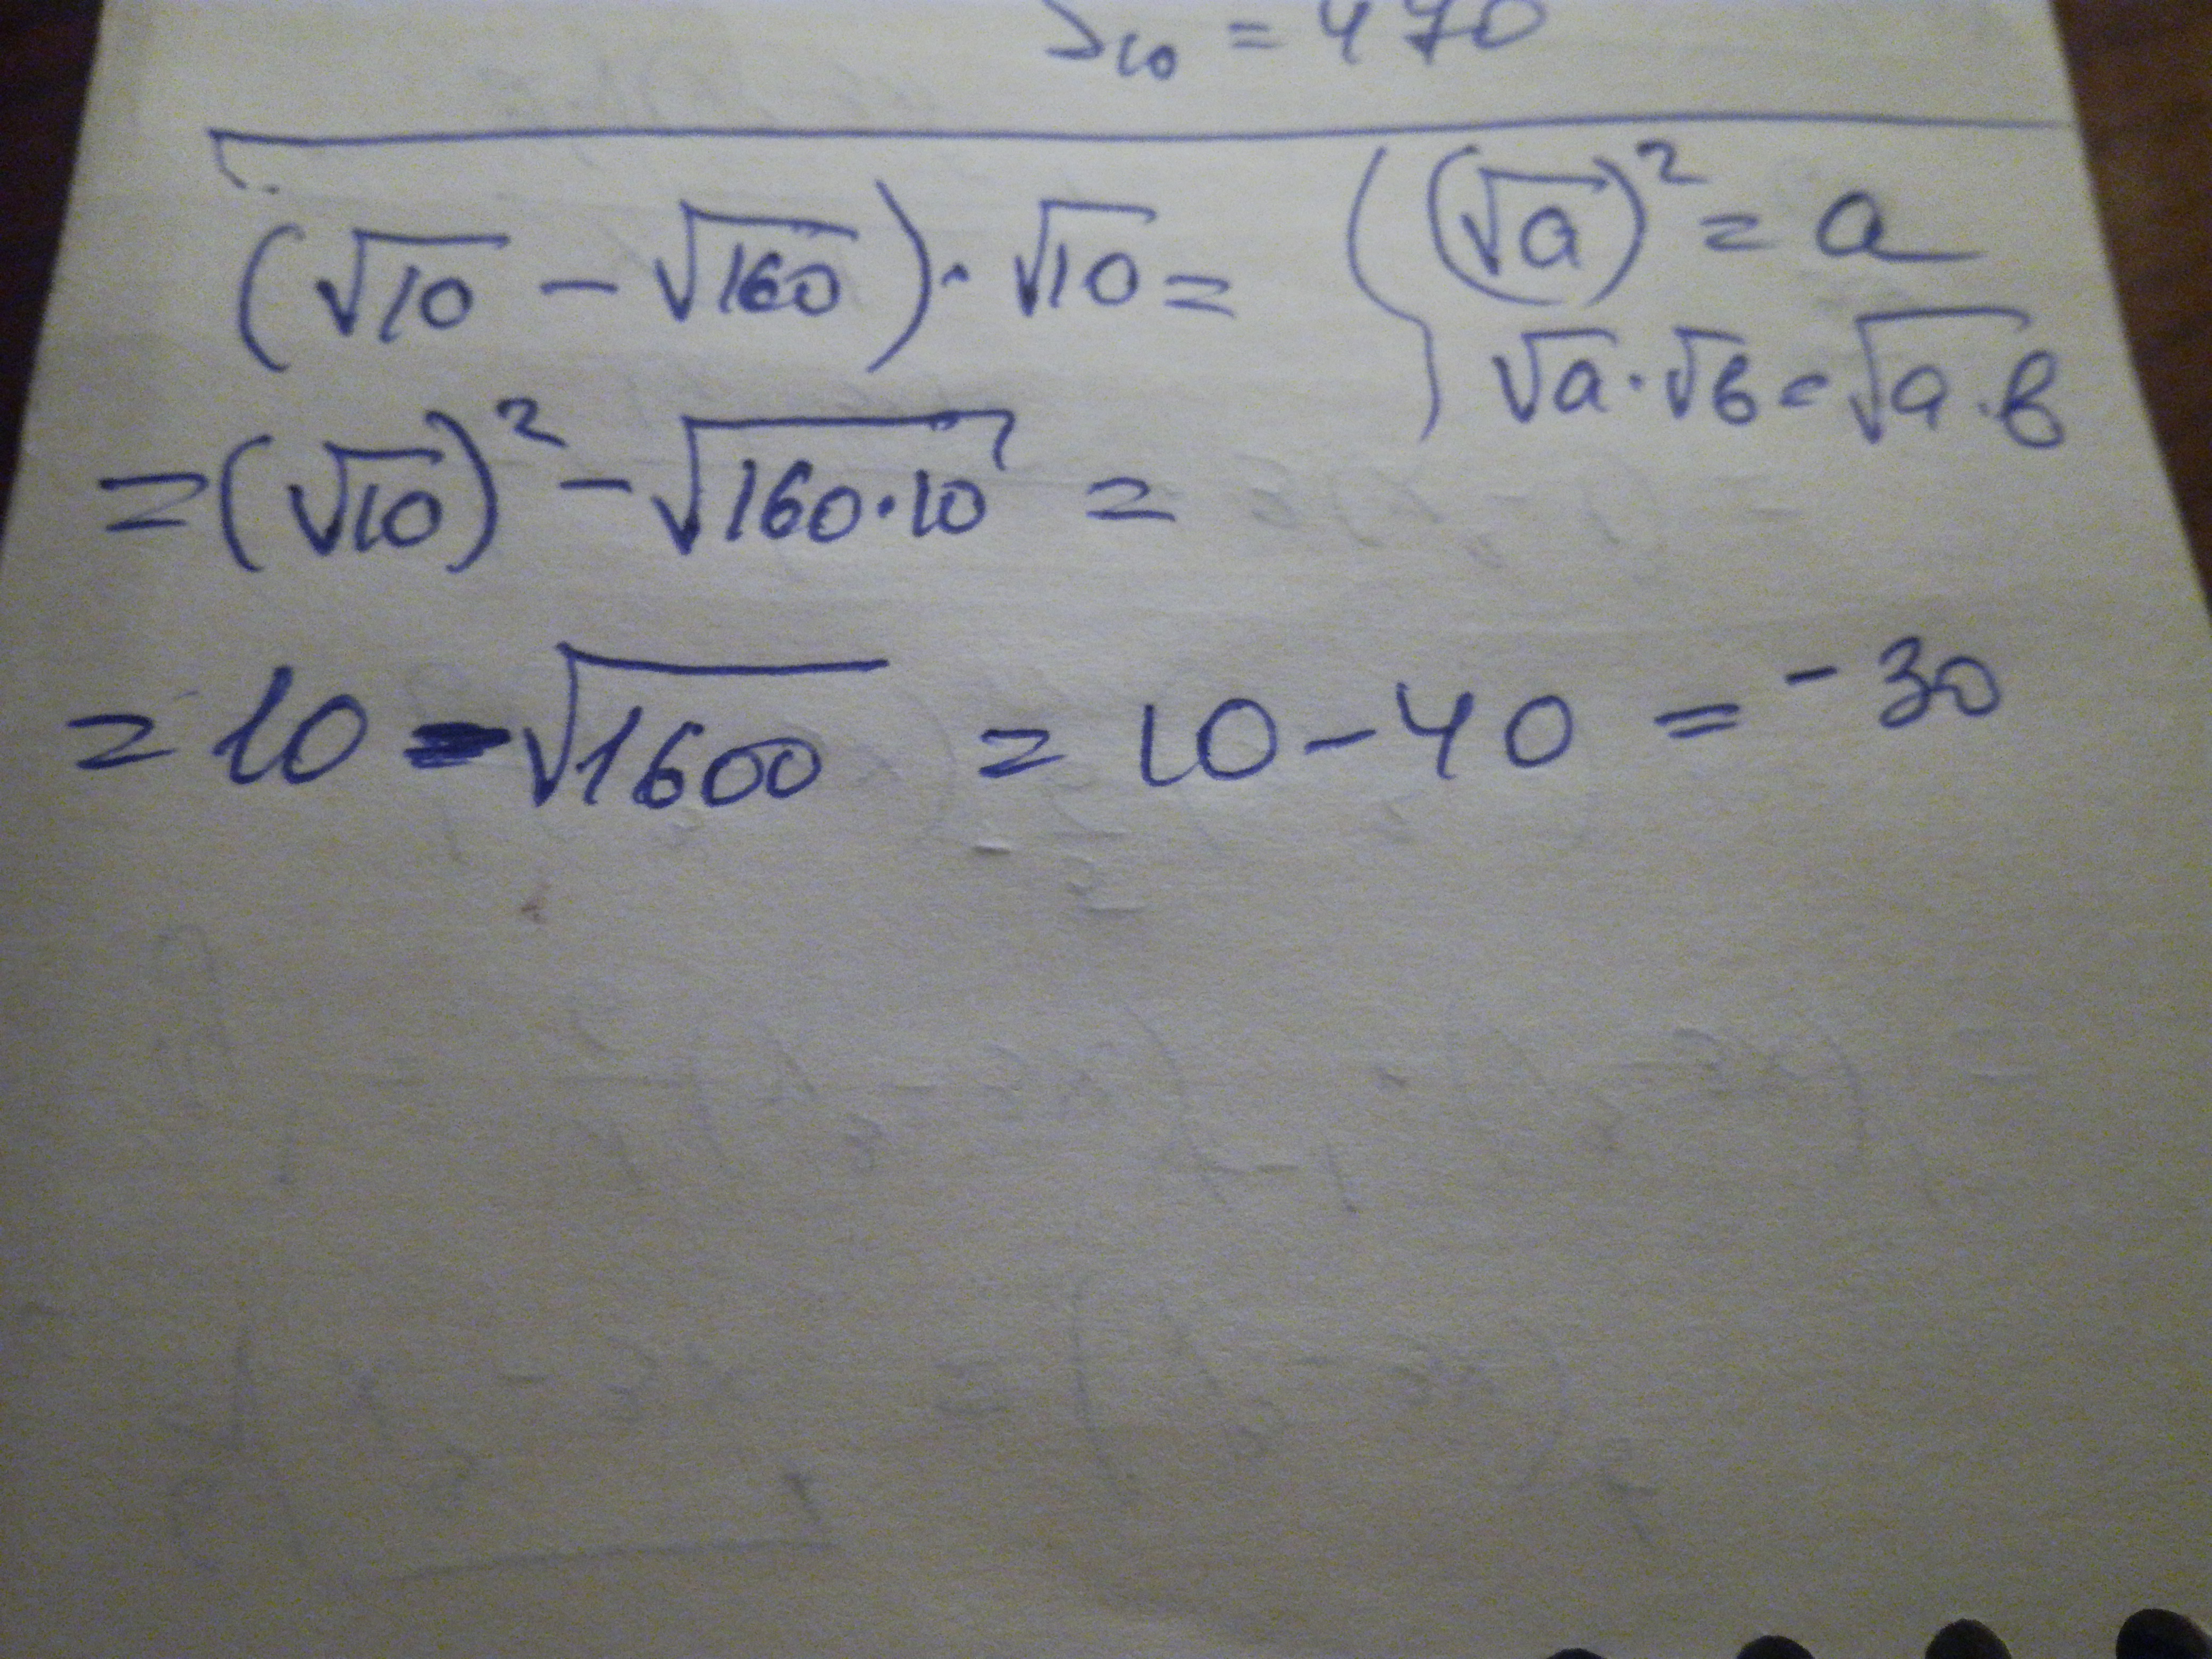 S₁₀ = 470
(√10 − √160) · √10 =
(√a)² = a
√a · √в = √a · в
= (√10)² − √160·10 =
= 10 − √1600 = 10 − 40 = −30